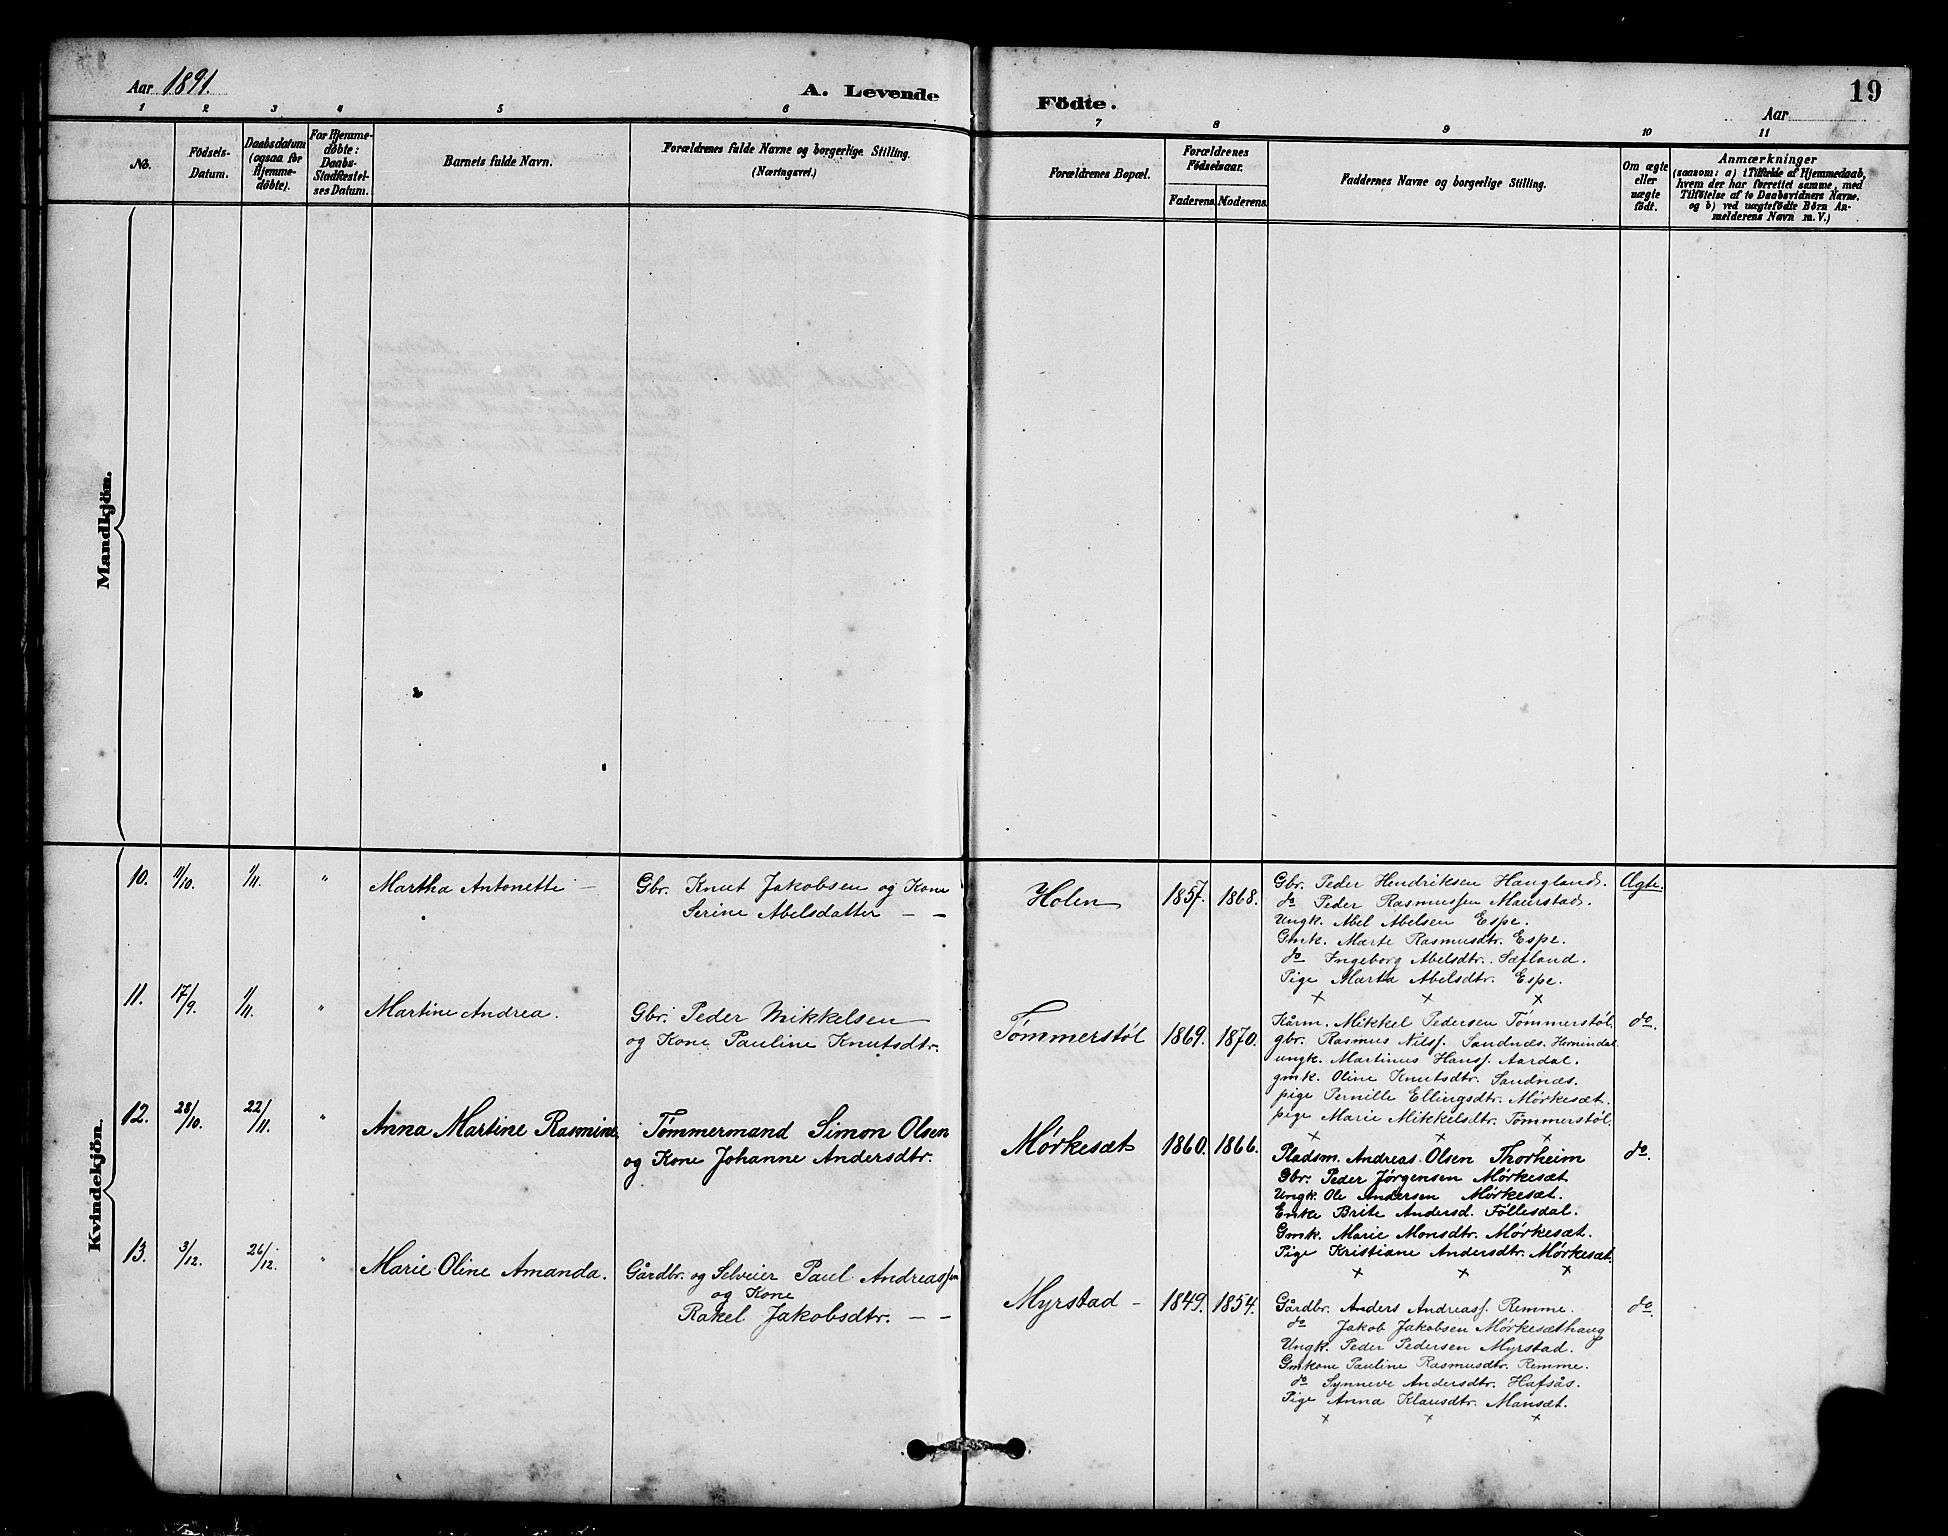 Aar 1891. A. Levende Födte. Aar 19
1 2 3 4 5 6 7 8 9 10 11
No.
Födsels-
Datum.
Daabsdatum
(ogsaa for
Hjemme-
döbte).
For Hjemme-
döbte:
Daabs-
Stadfæstel-
ses Datum.
Barnets fulde Navn.
Forældrenes fulde Navne og borgerlige Stilling.
(Næringsvei.)
Forældrenes Bopæl.
Forældrenes
Födselsaar.
Faderens. Moderens.
Faddernes Navne og borgerlige Stilling.
Om ægte
eller
uægte
födt.
Anmærkninger
(saasom: a) i Tilfælde af Hjemmedaab,
hvem der har forrettet samme, med
Tilföielse af to Daabsvidners Navne,
og b) ved uægtefödte Börn An-
melderens Navn m. V.)
Mandkjön.
Kvindekjön.
10. 11/10. 1/11. " Martha Antonette –
Gbr. Knut Jakobsen og Kone
Serine Abelsdatter – –
Holen 1857. 1868.
Gbr. Peder Hendriksen Hauglands.
do Peder Rasmussen Maurstad.
Ungk. Abel Abelsen Espe.
Gmk. Marte Rasmusdtr. Espe.
do Ingeborg Abelsdtr. Sæfland.
Pige Marta Abelsdtr. Espe.
x x x
Ægte.
11. 17/9. 1/11. " Martine Andrea.
Gbr. Peder Mikkelsen
og Kone Pauline Knutsdtr.
Tømmerstøl 1869. 1870.
Kårm. Mikkel Pedersen Tømmerstøl.
gbr. Rasmus Nilss. Sandnæs. Hornindal.
ungk. Martinus Hanss. Aardal.
gmk. Oline Knutsdtr. Sandnæs.
pige Pernille Ellingsdtr. Mørkesæt.
pige Marie Mikkelsdtr. Tømmerstøl.
x x x
do.
12. 28/10. 22/11. " Anna Martine Rasmine.
Tømmermand Simon Olsen
og Kone Johanne Andersdtr.
Mørkesæt 1860. 1866.
Pladsm. Andreas Olsen Thorheim
Gbr. Peder Jørgensen Mørkesæt
Ungk. Ole Andersen Mørkesæt.
Enke Brite Andersd. Føllesdal.
Gmk. Marie Monsdtr. Mørkesæt.
Pige Kristiane Andersdtr. Mørkesæt.
x x x
do.
13. 3/12. 26/12. " Marie Oline Amanda.
Gårdbr. og Selveier Paul Andreassen
og Kone
Rakel Jakobsdtr. – –
Myrstad – 1849. 1854.
Gårdbr. Anders Andreass. Remme.
do Jakob Jakobsen Mørkesæthaug
Ungk. Peder Pedersen Myrstad.
Gmkone Pauline Rasmusdtr. Remme.
do Synneve Andersdtr. Hafsås.
Pige Anna Klausdtr. Mansæt.
x x x
do.